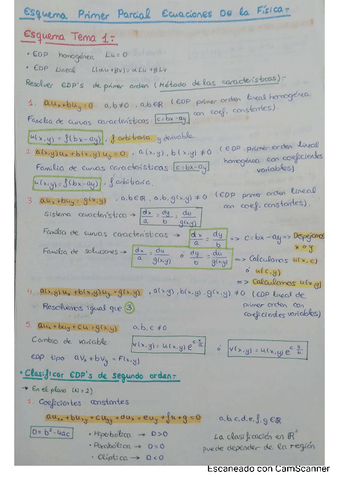 Esquema Primer Parcial Ecuaciones De la Física:-
Esquema Tema 1:-
• EDP homogénea Lu=0
• EDP Lineal L(αu+βv)=αLu+βLv
Resolver EDP's de primer orden (Método de las características):-
1. aux+buy=0 a,b≠0, a,b∈ℝ (EDP primer orden lineal homogénea
con coef. constantes).
Familia de curvas características c=bx-ay
u(x,y)=f(bx-ay), f arbitraria y derivable
2. a(x,y)ux+b(x,y)uy=0, a(x,y), b(x,y)≠0 (EDP primer orden lineal
homogénea con coeficientes
variables)
Familia de curvas características c=bx-ay
u(x,y)=f(bx-ay) f arbitraria.
3. aux+buy=g(x,y), a,b∈ℝ, a,b,g(x,y)≠0 (EDP primer orden lineal
con coef. constantes).
Sistema característico → dx/a = dy/b = du/g(x,y)
Familia de curvas características → dx/a = dy/b => c=bx-ay => Despejamos
x o y
Familia de soluciones → dx/a = du/g(x,y) o dy/b = du/g(x,y) => Calculamos u(x,c)
o u(c,y)
=> Calculamos u(x,y)
4. a(x,y)ux+b(x,y)uy=g(x,y), a(x,y), b(x,y), g(x,y)≠0 (EDP lineal de
primer orden con
coeficientes variables)
Resolvemos igual que 3
5. aux+buy+cu=g(x,y) a,b,c≠0
Cambio de variable v(x,y)=u(x,y)e^(c x/a) o v(x,y)=u(x,y)e^(c y/b)
EDP tipo avx+bvy=F(x,y)
• Clasificar EDP's de segundo orden:-
→ En el plano (N=2)
1. Coeficientes constantes
auxx+buxy+cuyy+dux+euy+fu+g=0 a,b,c,d,e,f,g∈ℝ
D=b²-4ac • Hiperbólica → D>0
• Parabólica → D=0
• Elíptica → D<0
La clasificación en ℝ²
puede depender de la región
Escaneado con CamScanner